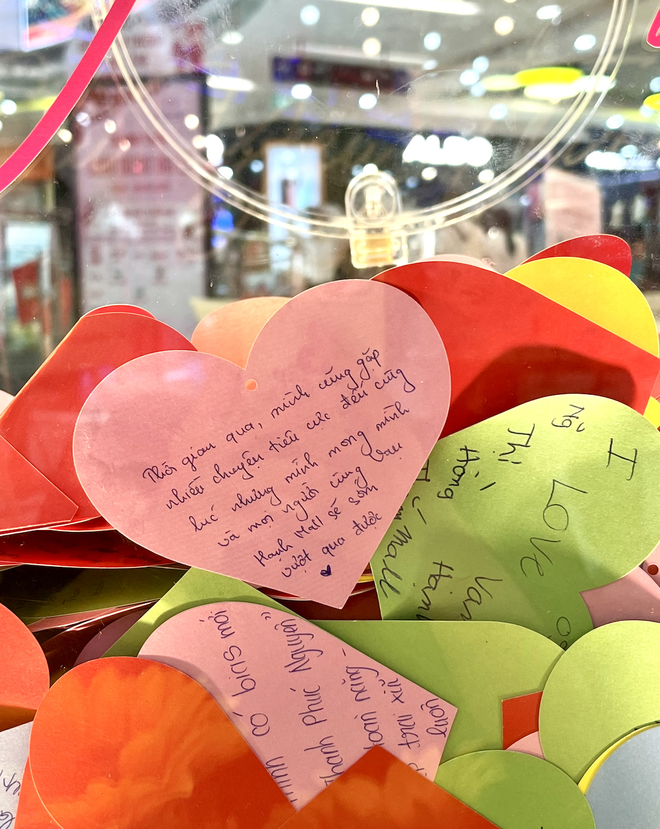 ALDO
Thời gian qua, mình cũng gặp
nhiều chuyện tiêu cực đến cùng
lúc nhưng mình mong mình
và mọi người cùng Vạn
Hạnh Mall sẽ sớm
vượt qua được
I LOVE
Vạn Hạnh
Mall
Ng
Thị
Hồng
có bias mới
Thanh Phúc Nguyên"
toàn năng
trai xịn
luôn